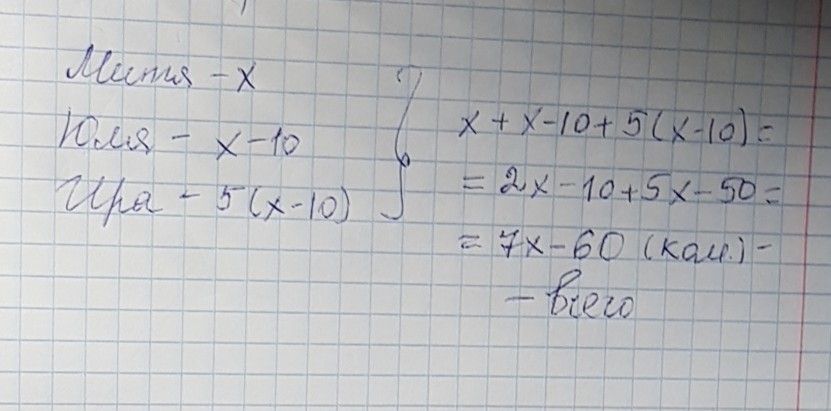 Митя - х
Юля - х-10
Ира - 5(х-10)
х + х-10+5(х-10)=
= 2х-10+5х-50=
= 7х-60 (кам.) -
- всего